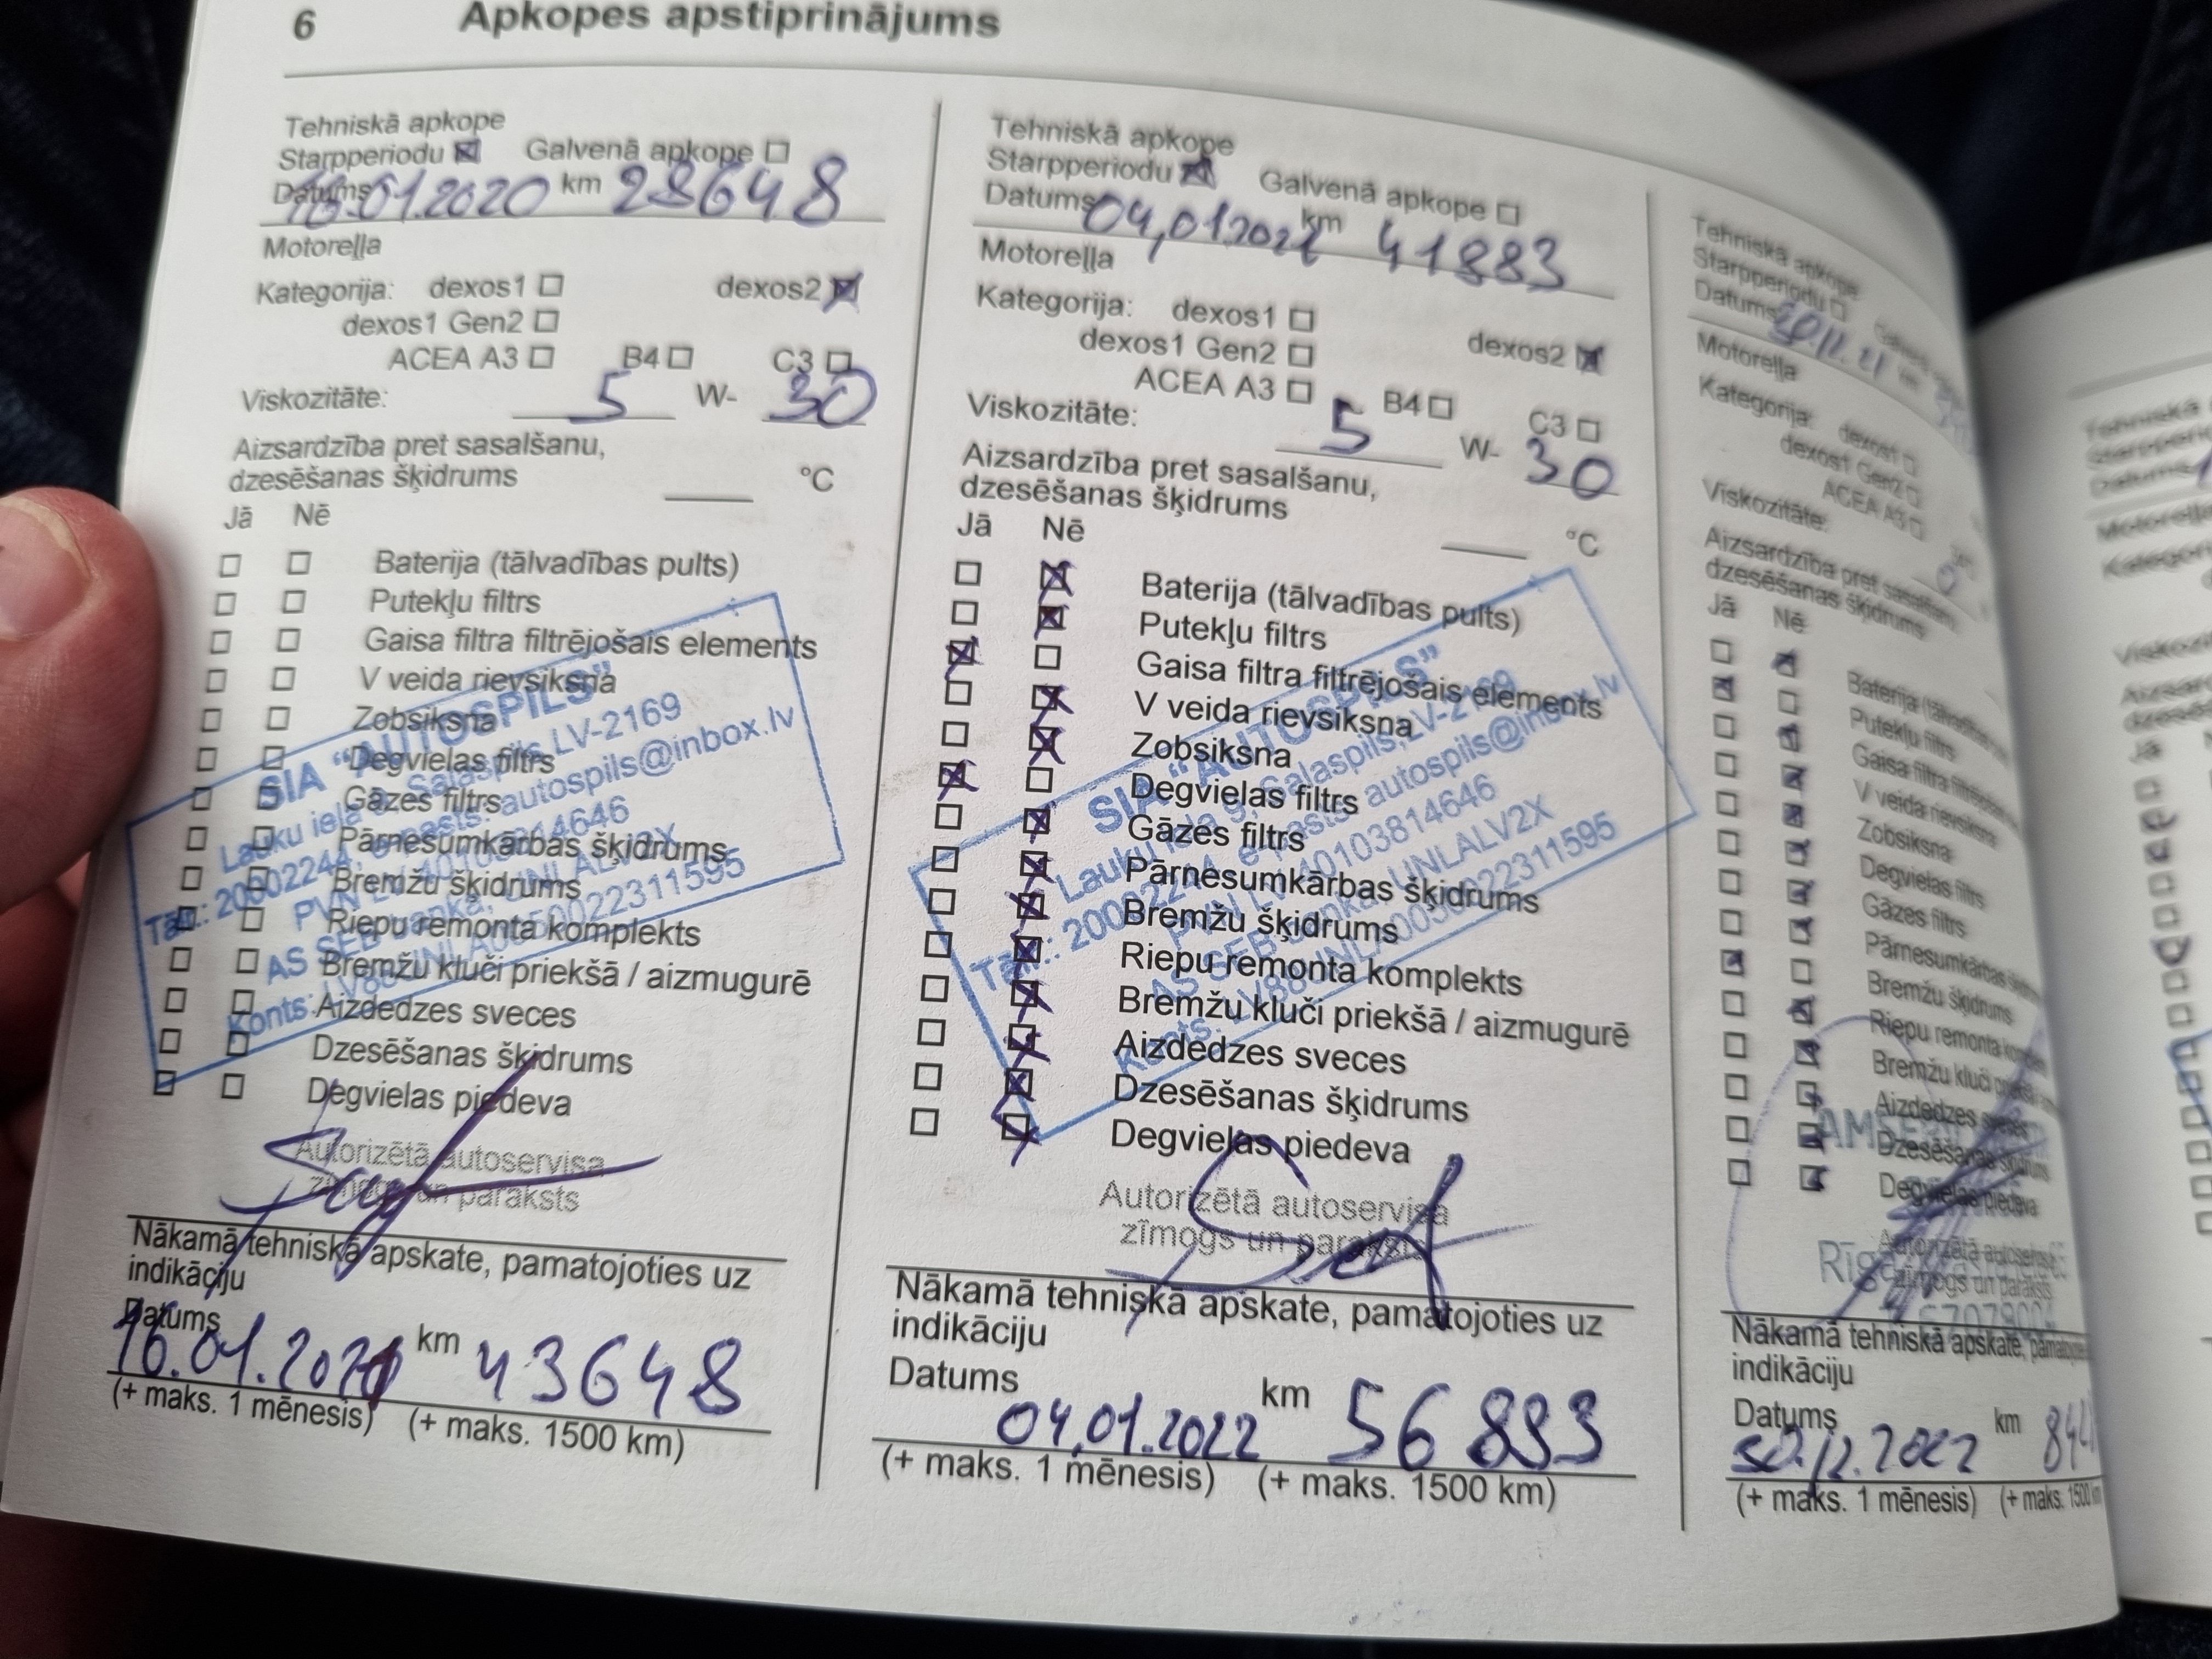 6 Apkopes apstiprinājums
Tehniskā apkope
Starpperiodu Galvenā apkope
Datums 16.01.2020 km 28648
Motoreļļa
Kategorija: dexos1 dexos2
dexos1 Gen2
ACEA A3 B4 C3
Viskozitāte: 5 W- 30
Aizsardzība pret sasalšanu,
dzesēšanas šķidrums °C
Jā Nē
Baterija (tālvadības pults)
Putekļu filtrs
Gaisa filtra filtrējošais elements
V veida rievsiksna
Zobsiksna
Degvielas filtrs
Gāzes filtrs
Pārnesumkārbas šķidrums
Bremžu šķidrums
Riepu remonta komplekts
Bremžu kluči priekšā / aizmugurē
Aizdedzes sveces
Dzesēšanas šķidrums
Degvielas piedeva
SIA "AUTOSPILS"
Lauku iela 9, Salaspils, LV-2169
autospils@inbox.lv
Autorizētā autoservisa
zīmogs un paraksts
Nākamā tehniskā apskate, pamatojoties uz
indikāciju
Datums
16.01.2021 km 43648
(+ maks. 1 mēnesis) (+ maks. 1500 km)
Tehniskā apkope
Starpperiodu Galvenā apkope
Datums 04,01.2021 km 41883
Motoreļļa
Kategorija: dexos1 dexos2
dexos1 Gen2
ACEA A3 B4 C3
Viskozitāte: 5 W- 30
Aizsardzība pret sasalšanu,
dzesēšanas šķidrums °C
Jā Nē
Baterija (tālvadības pults)
Putekļu filtrs
Gaisa filtra filtrējošais elements
V veida rievsiksna
Zobsiksna
Degvielas filtrs
Gāzes filtrs
Pārnesumkārbas šķidrums
Bremžu šķidrums
Riepu remonta komplekts
Bremžu kluči priekšā / aizmugurē
Aizdedzes sveces
Dzesēšanas šķidrums
Degvielas piedeva
SIA "AUTOSPILS"
Lauku iela 9, Salaspils, LV-2169
Tālr.: 20002244, e-pasts: autospils@inbox.lv
PVN LV 40103814646
AS SEB banka, UNLALV2X
Konts: LV88UNLA0050022311595
Autorizētā autoservisa
zīmogs un paraksts
Nākamā tehniskā apskate, pamatojoties uz
indikāciju
Datums 04,01.2022 km 56883
(+ maks. 1 mēnesis) (+ maks. 1500 km)
Tehniskā apkope
Starpperiodu
Datums 30.12.21
Motoreļļa
Kategorija: dexos1
dexos1 Gen2
ACEA A3
Viskozitāte:
Aizsardzība pret sasalšanu,
dzesēšanas šķidrums
Jā Nē
Baterija (tālvadības
Putekļu filtrs
Gaisa filtra
V veida rievsiksna
Zobsiksna
Degvielas filtrs
Gāzes filtrs
Pārnesumkārbas
Bremžu šķidrums
Riepu remonta
Bremžu kluči
Aizdedzes sveces
Dzesēšanas šķidrums
Degvielas piedeva
Autorizētā autoservisa
zīmogs un paraksts
Nākamā tehniskā apskate,
indikāciju
Datums km
30.12.2022
(+ maks. 1 mēnesis) (+ maks. 1500